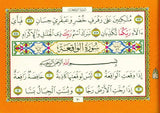 مُتَّكِـِٔينَ عَلَىٰ رَفْرَفٍ خُضْرٍ وَعَبْقَرِيٍّ حِسَانٍ فَبِأَيِّ
ءَالَآءِ رَبِّكُمَا تُكَذِّبَانِ تَبَٰرَكَ ٱسْمُ رَبِّكَ ذِى ٱلْجَلَٰلِ وَٱلْإِكْرَامِ
سُورَةُ الْوَاقِعَةِ
بِسْمِ ٱللَّهِ ٱلرَّحْمَٰنِ ٱلرَّحِيمِ
إِذَا وَقَعَتِ ٱلْوَاقِعَةُ لَيْسَ لِوَقْعَتِهَا كَاذِبَةٌ خَافِضَةٌ رَّافِعَةٌ
إِذَا رُجَّتِ ٱلْأَرْضُ رَجًّا وَبُسَّتِ ٱلْجِبَالُ بَسًّا